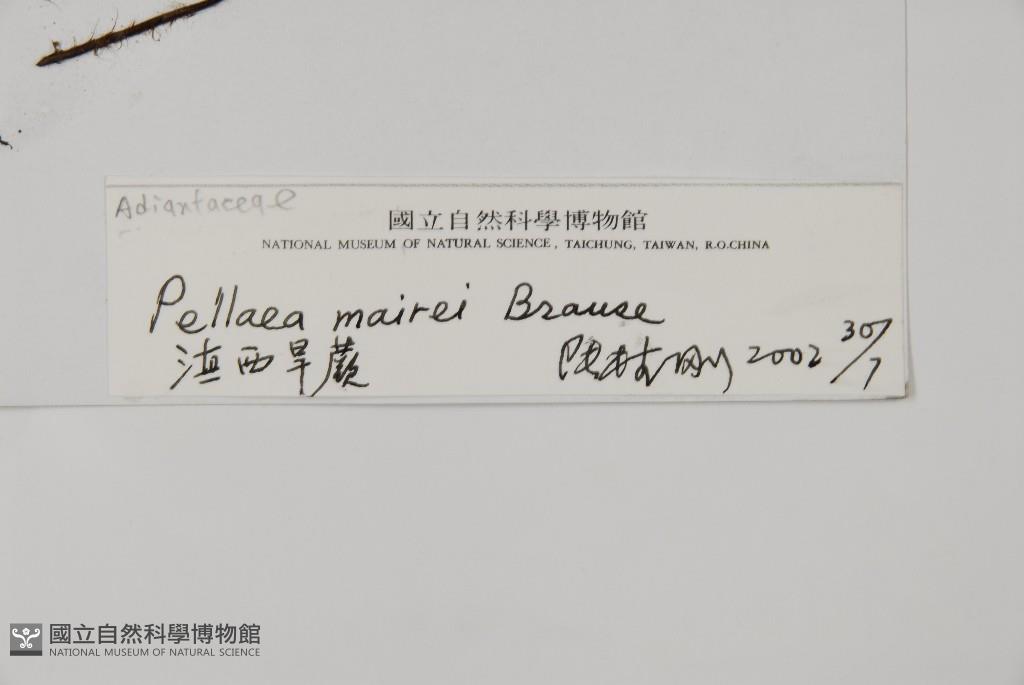 Adiantaceae
國立自然科學博物館
NATIONAL MUSEUM OF NATURAL SCIENCE, TAICHUNG, TAIWAN, R.O.CHINA
Pellaea mairei Brause
滇西旱蕨 2002 30/7
國立自然科學博物館
NATIONAL MUSEUM OF NATURAL SCIENCE